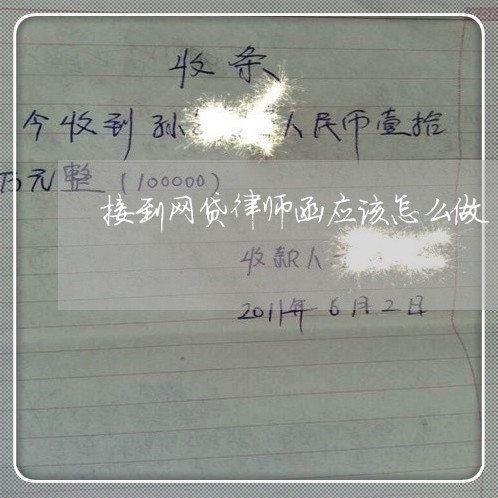 收条
今收到孙 人民币壹拾
万元整(100000)
接到网贷律师函应该怎么做
收款人
2011年6月2日